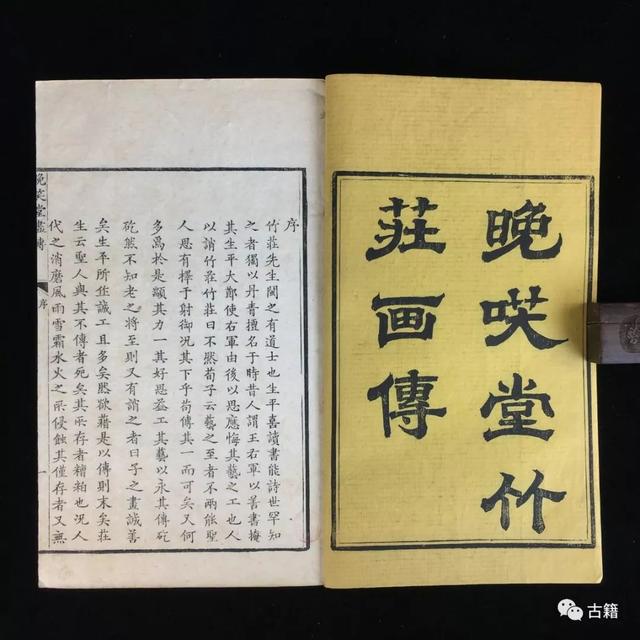 晚咲堂竹
莊画傳
序
竹莊先生閩之有道士也生平喜讀書能詩世罕知
之者獨以丹青擅名于時昔人謂王右軍以善書掩
其生平大節使右軍由後以思應悔其藝之工也人
以誚竹莊竹莊曰不然荀子云藝之至者不兩能聖
人思有擇于射御況其下乎苟傳其一而可矣又何
多焉於是顓其力一其好思益工其藝以永其傳矻
矻然不知老之將至則又有誚之者曰子之畫誠善
矣生平所作誠工且多矣然欲藉是以傳則末矣莊
生云聖人與其不傳者死矣其所存者糟粕也況人
代之消磨風雨雪霜水火之所侵蝕其僅存者又無
晚笑堂畫傳 序 一
古籍